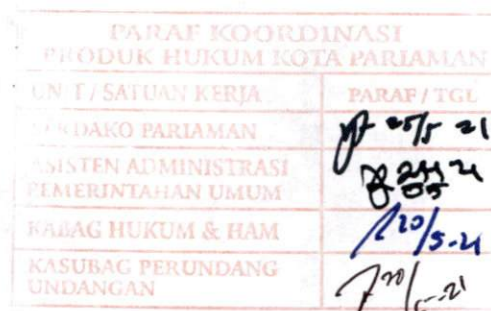 PARAF KOORDINASI
PRODUK HUKUM KOTA PARIAMAN
UNIT / SATUAN KERJA PARAF / TGL
SEKDAKO PARIAMAN 25/5 21
ASISTEN ADMINISTRASI
PEMERINTAHAN UMUM
KABAG HUKUM & HAM 20/5-21
KASUBAG PERUNDANG
UNDANGAN 20/5-21